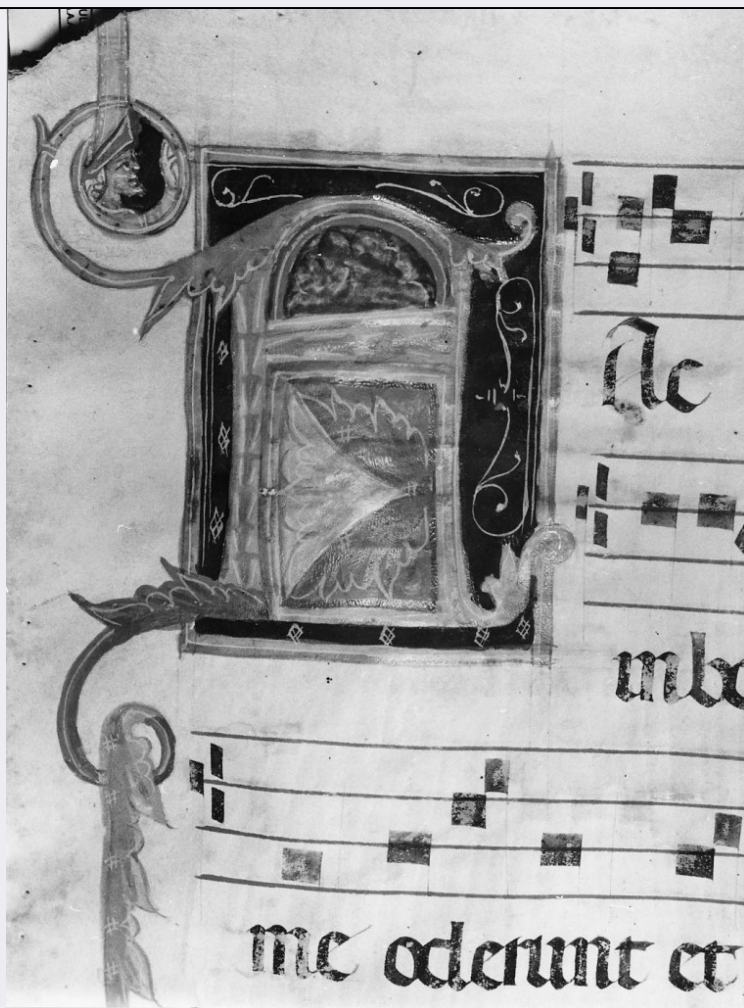 FAc
inbo
me oderunt et